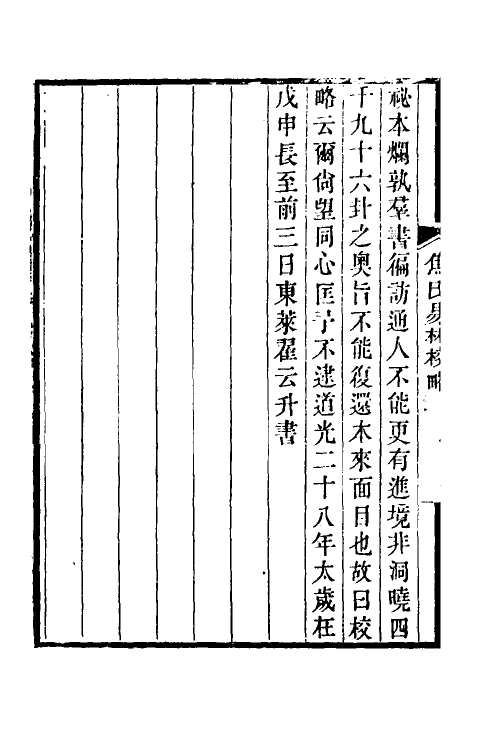 焦氏易林校略
祕本爛孰羣書徧訪通人不能更有進境非洞曉四
千九十六卦之奧旨不能復還本來面目也故曰校
略云爾尙望同心匡予不逮道光二十八年太歲在
戊申長至前三日東萊翟云升書